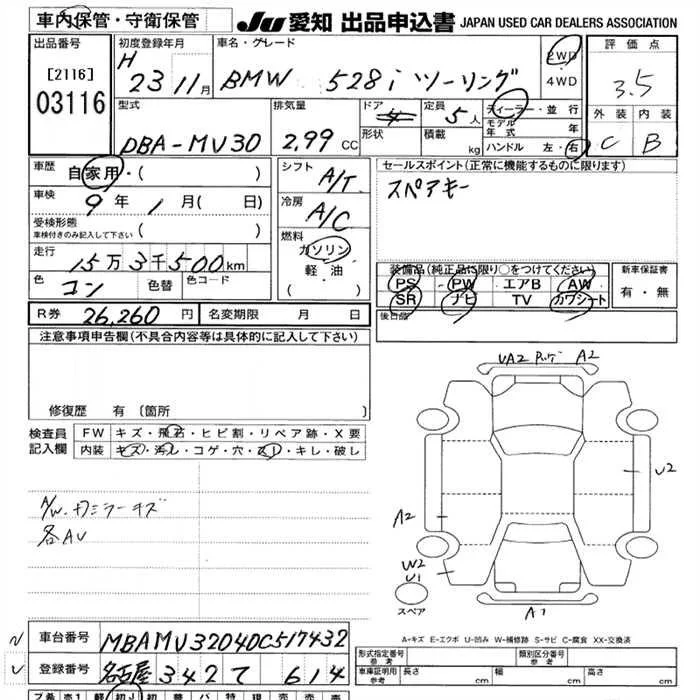 車内保管・守衛保管
JU 愛知 出品申込書 JAPAN USED CAR DEALERS ASSOCIATION
出品番号
[2116]
03116
初度登録年月
H 23 11月
車名・グレード
BMW 528i ツーリング
2WD
4WD
評価点
3.5
外装 内装
C B
型式
DBA-MU30
排気量
2.99 CC
ドア
4
形状
定員
5人
積載
kg
ディーラー・並行
モデル年式 年
ハンドル 左・右
車歴
自家用・( )
車検
9年 1月( 日)
受検形態
車検付きのみ記入して下さい ( )
走行
15万3千500km
色
コン
色替
色コード
シフト
A/T
冷房
A/C
燃料
ガソリン
軽・油
・( )
セールスポイント(正常に機能するものに限ります)
スペアキー
装備品(純正品に限り○をつけてください)
PS PW エアB AW
SR ナビ TV カワシート
新車保証書
有・無
後日品
R券 26,260円
名変期限 月 日
注意事項申告欄(不具合内容等は具体的に記入して下さい)
修復歴 有 〔箇所 〕
検査員
記入欄
FW キズ・飛石・ヒビ割・リペア跡・X要
内装 キズ・汚し・コゲ・穴・スレ・キレ・破し
A/W.ドミラーキズ
各AU
UA2 A2
U2
A2
W2
U1
スペア
A1
A-キズ E-エクボ U-凹み W-補修跡 S-サビ C-腐食 XX-交換済
車台番号
MBAMU32040C517432
登録番号
名古屋 342 て 614
形式指定番号
参考
類別区分番号
参考
車庫証明用
参考
長さ cm
幅 cm
高さ cm